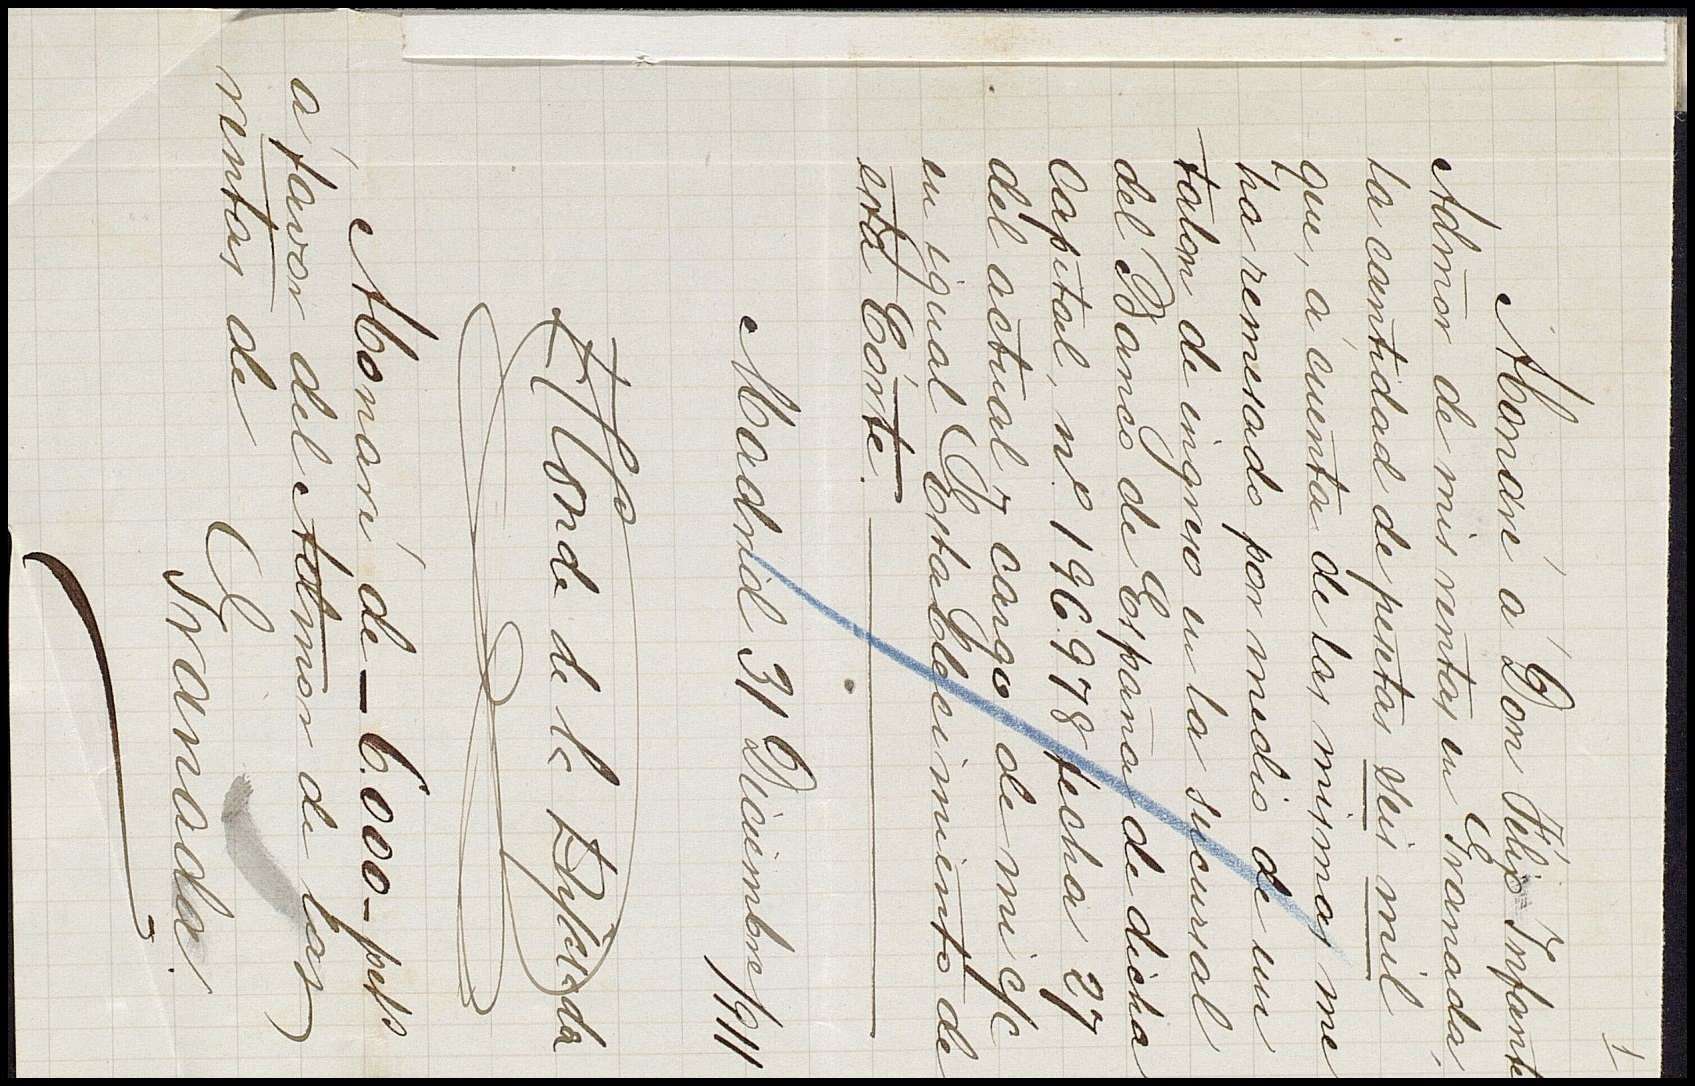 1
Abonaré á Don Félix Infante
Admor de mis rentas en Granada,
la cantidad de pesetas seis mil
que, á cuenta de las mismas me
ha remesado por medio de un
talon de ingreso en la sucursal
del Banco de España de dicha
Capital, nº 196.978 fecha 27
del actual y cargo de mi c/c
en igual Establecimiento de
esta Córte.
Madrid 31 Diciembre/911
El Conde de la
Abonaré de - 6.000 - pts
á favor del Admor de las
rentas de
Granada.